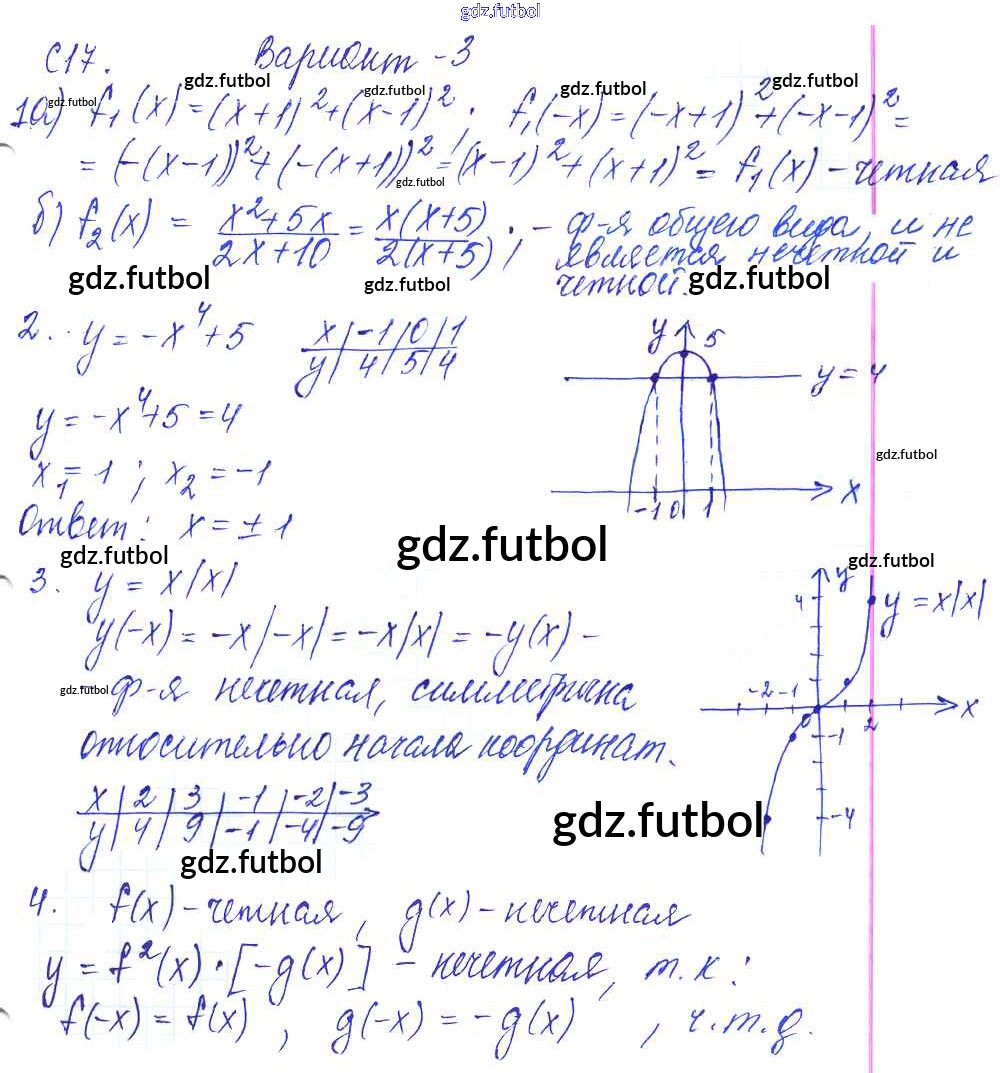 gdz.futbol
С17. Вариант -3
gdz.futbol gdz.futbol gdz.futbol gdz.futbol
1а) f₁(x) = (x+1)² + (x-1)². f₁(-x) = (-x+1)² + (-x-1)² =
= (-(x-1))² + (-(x+1))² = (x-1)² + (x+1)² = f₁(x) - четная
gdz.futbol
б) f₂(x) = (x²+5x)/(2x+10) = x(x+5)/2(x+5); - ф-я общего вида, и не
является нечетной и
четной.
gdz.futbol gdz.futbol gdz.futbol
2. y = -x⁴+5
x | -1 | 0 | 1
y | 4 | 5 | 4
y 5
y = 4
y = -x⁴+5 = 4
x₁ = 1 ; x₂ = -1
gdz.futbol
x
-1 0 1
Ответ: x = ± 1
gdz.futbol gdz.futbol gdz.futbol
3. y = x|x|
y
4
y = x|x|
y(-x) = -x|-x| = -x|x| = -y(x) -
gdz.futbol
- ф-я нечетная, симметрична
-2 -1 0 2 x
-1
-4
относительно начала координат.
x | 2 | 3 | -1 | -2 | -3
y | 4 | 9 | -1 | -4 | -9
gdz.futbol
gdz.futbol
4. f(x) - четная, g(x) - нечетная
y = f²(x)·[-g(x)] - нечетная, т.к:
f(-x) = f(x) , g(-x) = -g(x) , ч.т.д.